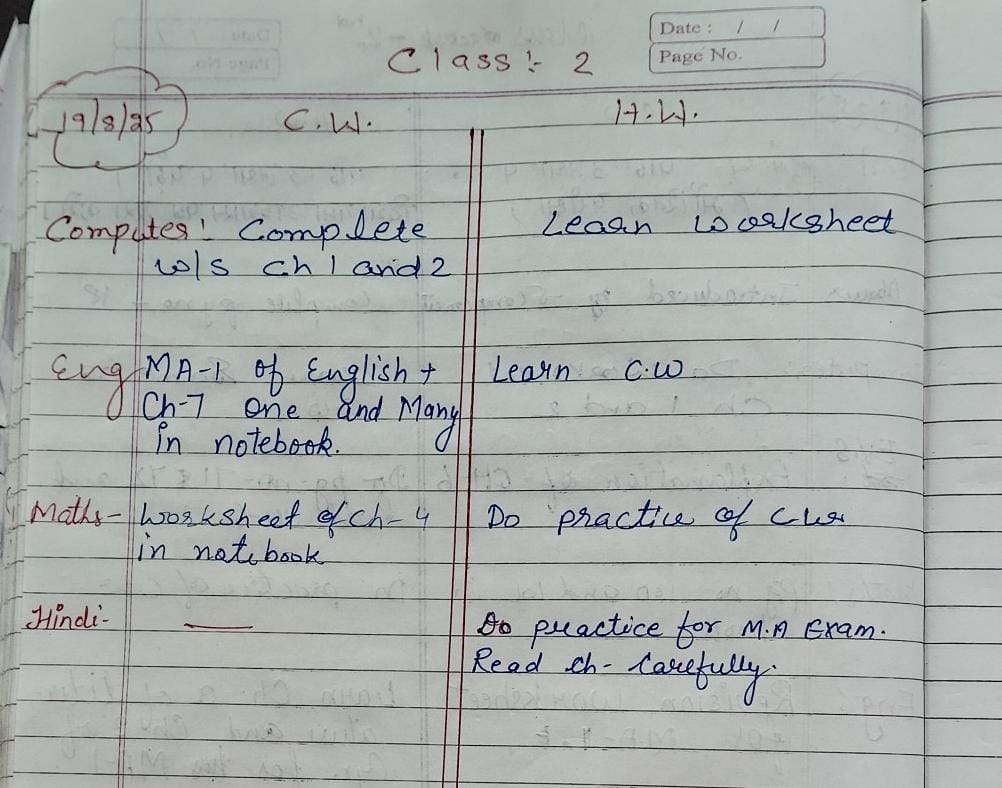 Date : / /
Page No.
Class :- 2
19/8/25 C.W. H.W.
Computer : Complete Learn Worksheet
w/s ch 1 and 2
Eng MA-1 of English + Learn C.W
Ch-7 One and Many
in notebook.
Maths - Worksheet of Ch-4 Do practice of C.W
in notebook
Hindi- — Do practice for M.A Exam.
Read ch- Carefully.